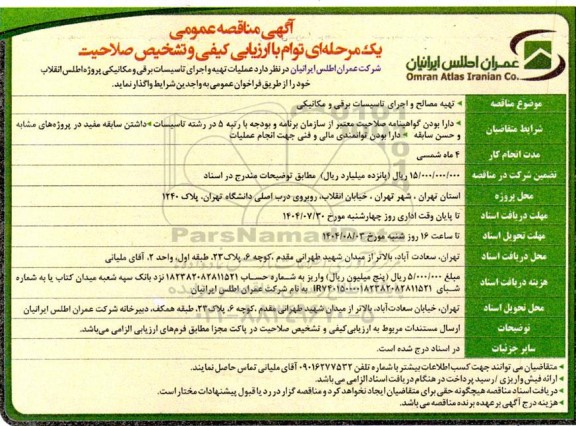 آگهی مناقصه عمومی
یک مرحله‌ای توام با ارزیابی کیفی و تشخیص صلاحیت
عمران اطلس ایرانیان
Omran Atlas Iranian Co.
شرکت عمران اطلس ایرانیان در نظر دارد عملیات تهیه و اجرای تاسیسات برقی و مکانیکی پروژه اطلس انقلاب
خود را از طریق فراخوان عمومی به واجدین شرایط واگذار نماید.
موضوع مناقصه
تهیه مصالح و اجرای تاسیسات برقی و مکانیکی
شرایط متقاضیان
دارا بودن گواهینامه صلاحیت معتبر از سازمان برنامه و بودجه با رتبه ۵ در رشته تاسیسات داشتن سابقه مفید در پروژه‌های مشابه
و حسن سابقه دارا بودن توانمندی مالی و فنی جهت انجام عملیات
مدت انجام کار
۴ ماه شمسی
تضمین شرکت در مناقصه
۱۵/۰۰۰/۰۰۰/۰۰۰ ریال (پانزده میلیارد ریال) مطابق توضیحات مندرج در اسناد
محل پروژه
استان تهران ، شهر تهران ، خیابان انقلاب، روبروی درب اصلی دانشگاه تهران، پلاک ۱۲۴۰
مهلت دریافت اسناد
تا پایان وقت اداری روز چهارشنبه مورخ ۱۴۰۴/۰۷/۳۰
مهلت تحویل اسناد
تا ساعت ۱۶ روز شنبه مورخ ۱۴۰۴/۰۸/۰۳
محل دریافت اسناد
تهران، سعادت آباد، بالاتر از میدان شهید طهرانی مقدم ،کوچه ۶، پلاک۲۳، طبقه اول، واحد ۲، آقای ملیانی
هزینه دریافت اسناد
مبلغ ۵/۰۰۰/۰۰۰ ریال (پنج میلیون ریال) واریز به شماره حساب ۱۸۲۳۸۲۰۸۲۸۱۱۵۲۱ نزد بانک سپه شعبه میدان کتاب یا به شماره
شبای به نام شرکت عمران اطلس ایرانیان
محل تحویل اسناد
تهران، خیابان سعادت‌آباد، بالاتر از میدان شهید طهرانی مقدم ،کوچه ۶، پلاک۲۳، طبقه همکف، دبیرخانه شرکت عمران اطلس ایرانیان
توضیحات
ارسال مستندات مربوط به ارزیابی کیفی و تشخیص صلاحیت در پاکت مجزا مطابق فرم‌های ارزیابی الزامی می‌باشد.
سایر جزئیات
در اسناد درج شده است.
متقاضیان می توانند جهت کسب اطلاعات بیشتر با شماره تلفن ۰۹۰۱۶۲۷۷۵۳۲ آقای ملیانی تماس حاصل نمایند.
ارائه فیش واریزی / رسید پرداخت در هنگام دریافت اسناد الزامی می باشد.
دریافت اسناد مناقصه هیچگونه حقی برای متقاضیان ایجاد نخواهد کرد و مناقصه گزار در رد یا قبول پیشنهادات مختار است.
هزینه درج آگهی بر عهده برنده مناقصه می باشد.
ParsNamadData